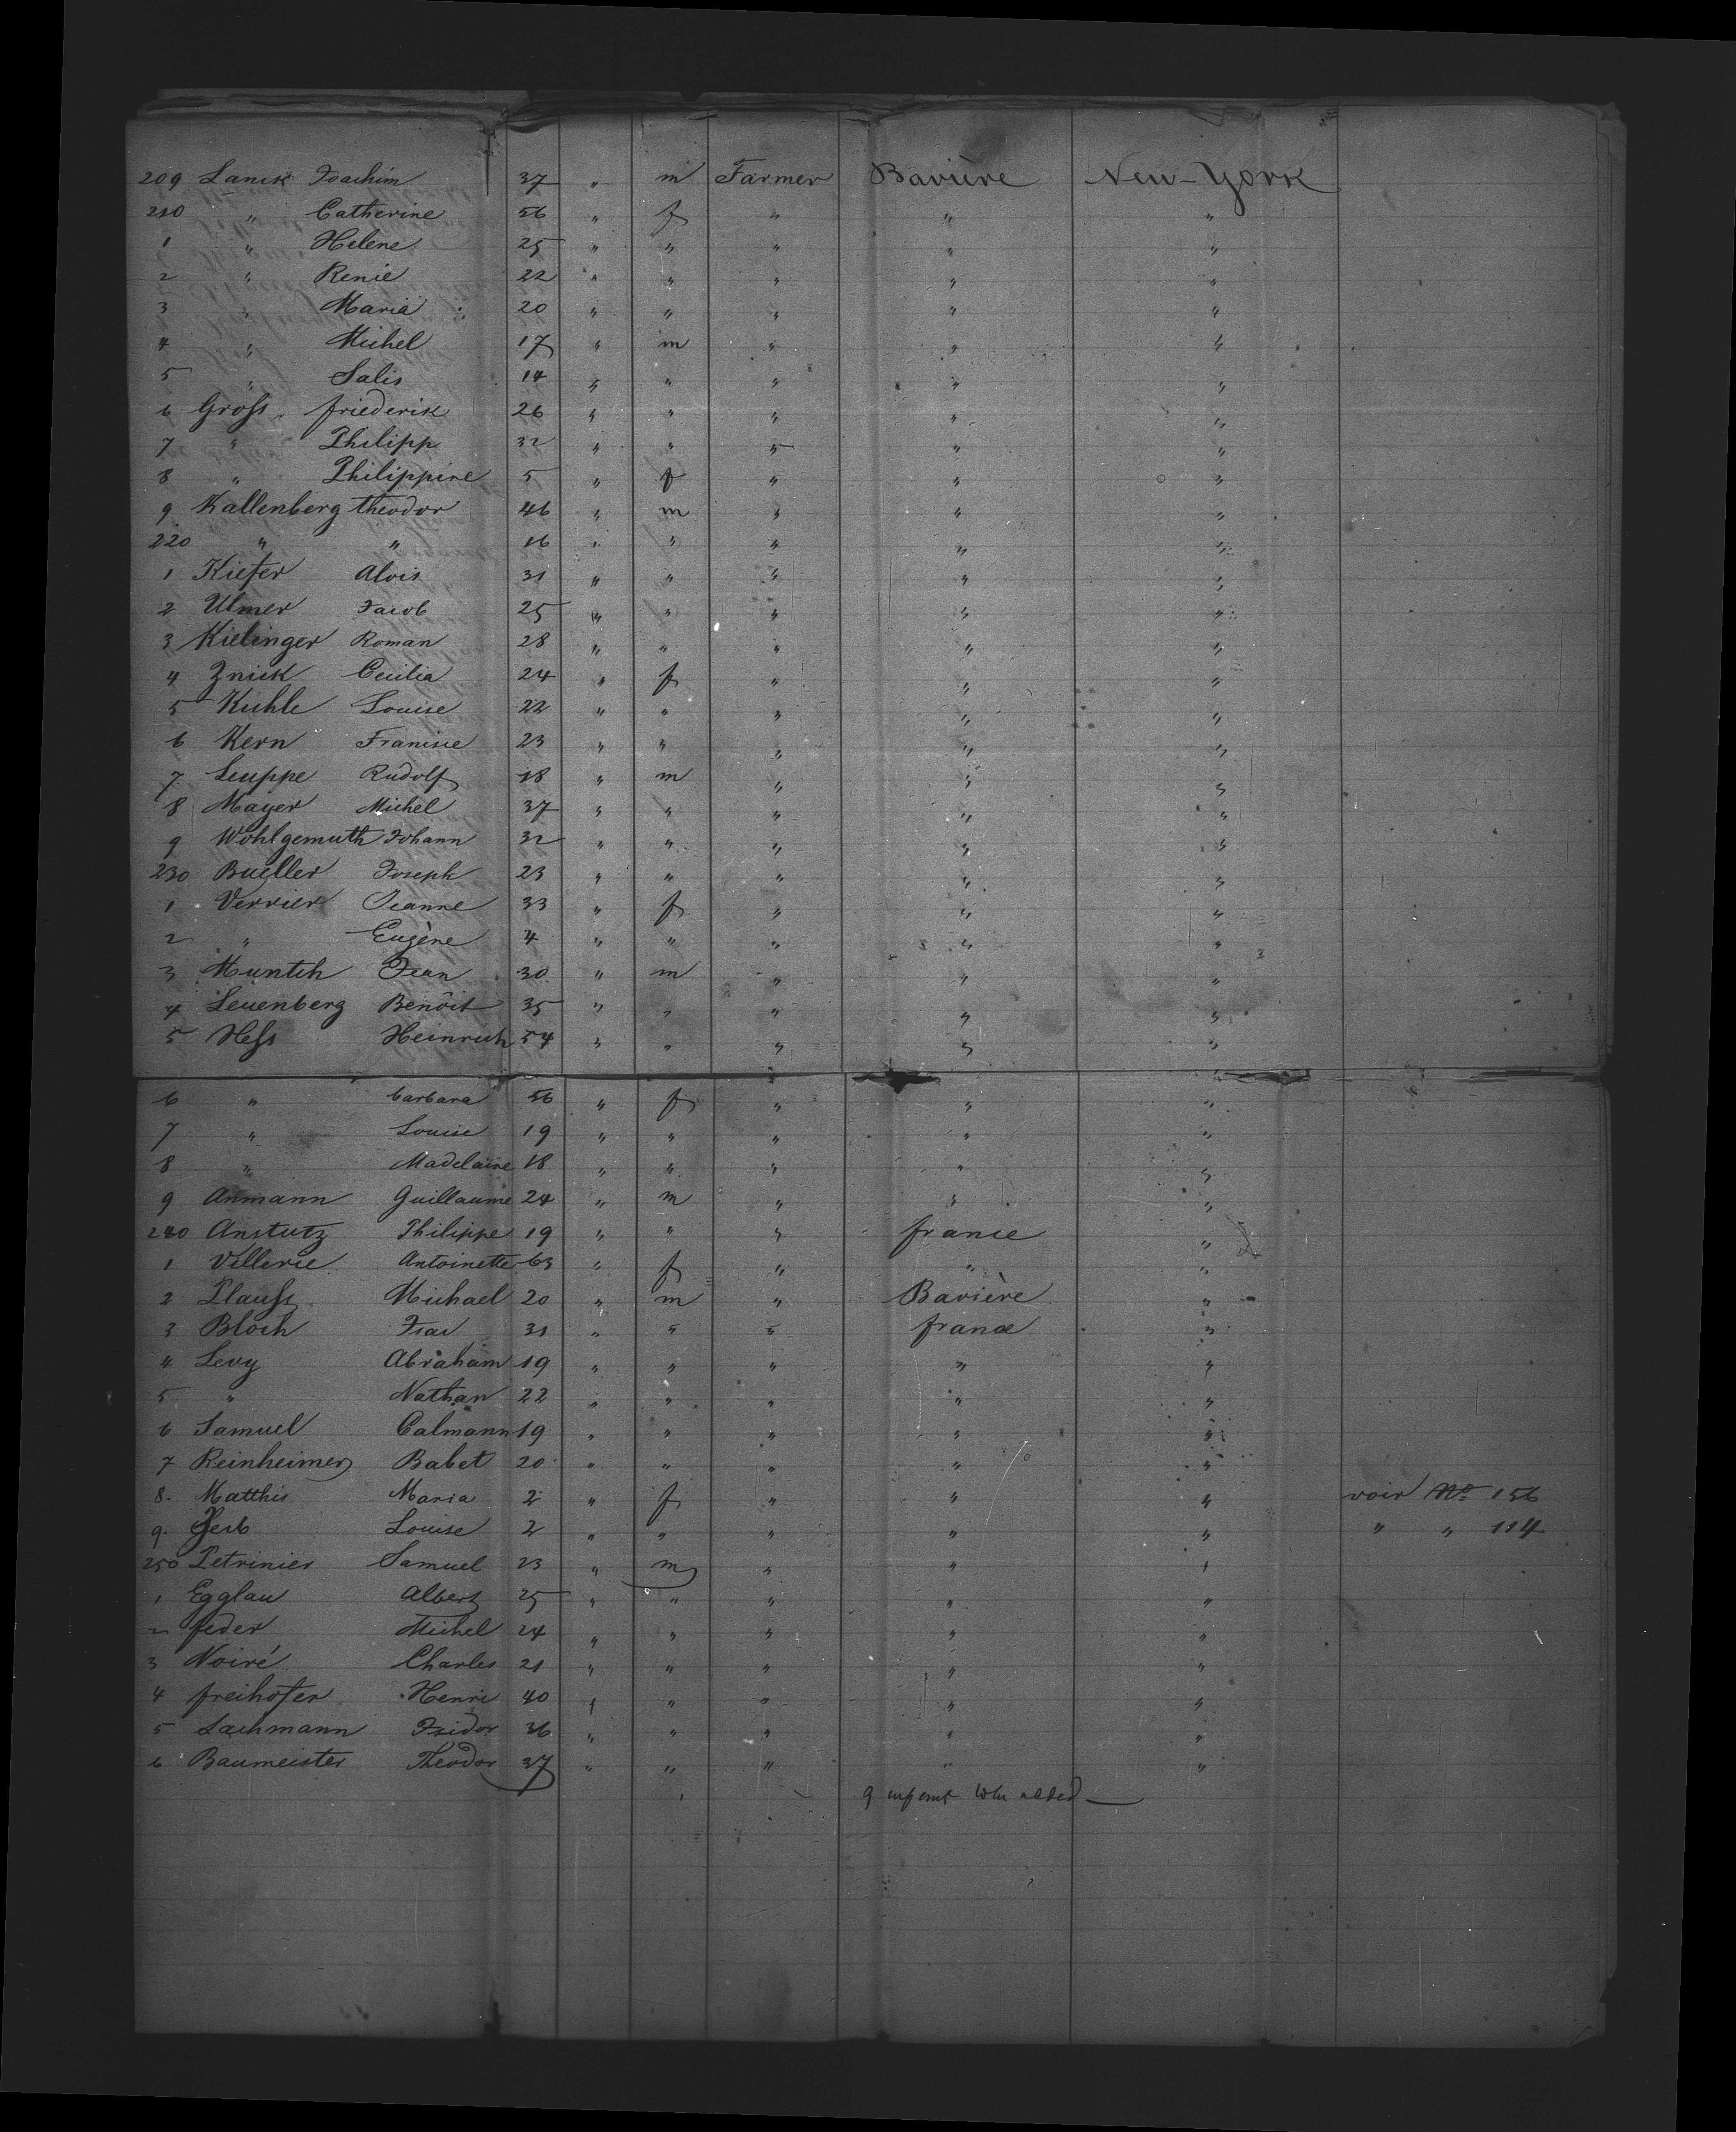 209 Lanck Joachim 37 " m Farmer Bavière New-York
210 " Catherine 56 " f " " "
1 " Helene 25 " " " " "
2 " Renie 22 " " " " "
3 " Maria 20 " " " " "
4 " Michel 17 " m " " "
5 " Salis 14 " " " " "
6 Groß friederik 26 " " " " "
7 " Philipp 32 " " " " "
8 " Philippine 5 " f " " "
9 Kallenberg theodor 46 " m " " "
220 " " 16 " " " " "
1 Kiefer Alois 31 " " " " "
2 Ulmer Jacob 25 " " " " "
3 Kielinger Roman 28 " " " " "
4 Znick Cecilia 24 " f " " "
5 Kuhle Louise 22 " " " " "
6 Kern Francise 23 " " " " "
7 Leuppe Rudolf 18 " m " " "
8 Mayer Michel 37 " " " " "
9 Wohlgemuth Johann 32 " " " " "
230 Bueller Joseph 23 " " " " "
1 Verrier Jeanne 33 " f " " "
2 " Eugène 4 " " " " "
3 Muntch Jean 30 " m " " "
4 Leuenberg Benôit 35 " " " " "
5 Heß Heinrich 54 " " " " "
6 " barbara 56 " f " " "
7 " Louise 19 " " " " "
8 " Madelaine 18 " " " " "
9 Anmann Guillaume 24 " m " " "
240 Anstutz Philippe 19 " " " france "
1 Villerie Antoinette 63 " f " " "
2 Plauß Michael 20 " m " Bavière "
3 Bloch Isac 31 " " " france "
4 Levy Abraham 19 " " " " "
5 " Nathan 22 " " " " "
6 Samuel Calmann 19 " " " " "
7 Reinheimer Babet 20 " " " " "
8. Matthis Maria 2 " f " " " voir No 156
9. Jerb Louise 2 " " " " " " " 114
250 Petrinier Samuel 23 " m " " "
1 Egglau Albert 25 " " " " "
2 feder Michel 24 " " " " "
3 Noiré Charles 21 " " " " "
4 freihofer Henri 40 " " " " "
5 Lachmann Isidor 36 " " " " "
6 Baumeister Theodor 37 " " " " "
9 added